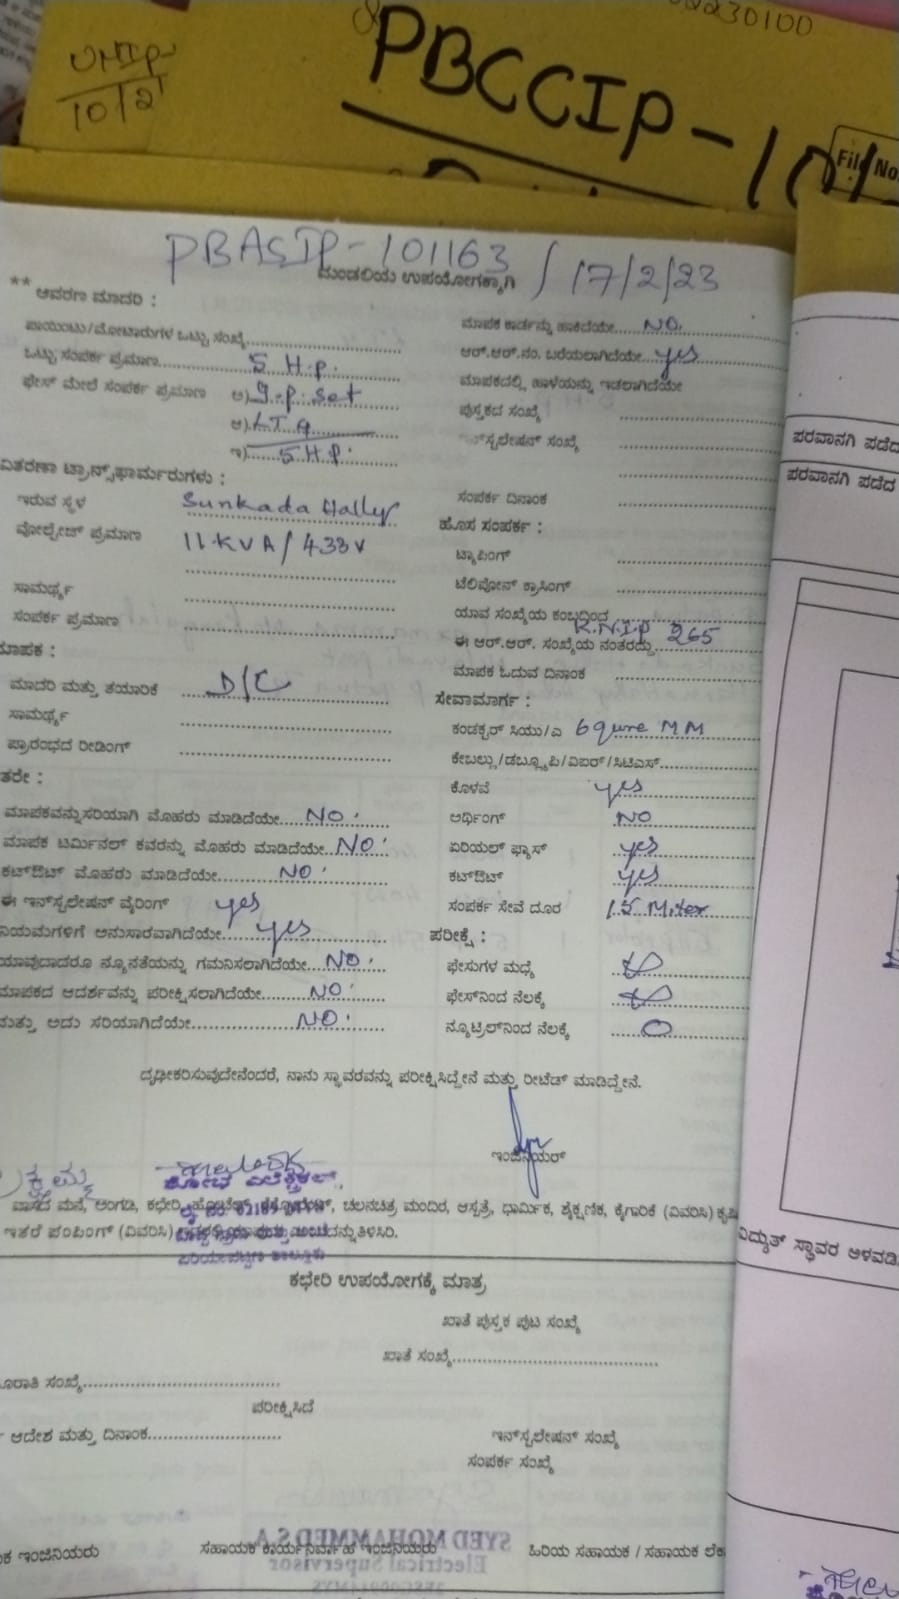 230100
UHIP-
10/2
PBCCIP-101
File No
PBASIP-101163 / 17/2/23
ಮಂಡಲಿಯ ಉಪಯೋಗಕ್ಕಾಗಿ
** ಆವರಣ ಮಾದರಿ :
ಪಾಯಿಂಟು/ಮೋಟಾರುಗಳ ಒಟ್ಟು ಸಂಖ್ಯೆ
ಒಟ್ಟು ಸಂಪರ್ಕ ಪ್ರಮಾಣ 5 H.P.
ಫೇಸ್ ಮೇಲೆ ಸಂಪರ್ಕ ಪ್ರಮಾಣ ಅ) I.P. Set
ಆ)
ಇ) 5 H.P.
ವಿತರಣಾ ಟ್ರಾನ್ಸ್‌ಫಾರ್ಮರುಗಳು :
ಇರುವ ಸ್ಥಳ Sunkada Hally
ವೋಲ್ಟೇಜ್ ಪ್ರಮಾಣ 11 KVA/433V
ಸಾಮರ್ಥ್ಯ
ಸಂಪರ್ಕ ಪ್ರಮಾಣ
ಮಾಪಕ :
ಮಾದರಿ ಮತ್ತು ತಯಾರಿಕೆ D/C
ಸಾಮರ್ಥ್ಯ
ಪ್ರಾರಂಭದ ರೀಡಿಂಗ್
ಇತರೇ :
ಮಾಪಕವನ್ನು ಸರಿಯಾಗಿ ಮೊಹರು ಮಾಡಿದೆಯೇ NO
ಮಾಪಕ ಟರ್ಮಿನಲ್ ಕವರನ್ನು ಮೊಹರು ಮಾಡಿದೆಯೇ NO
ಕಟ್‌ಔಟ್ ಮೊಹರು ಮಾಡಿದೆಯೇ NO
ಈ ಇನ್‌ಸ್ಟಲೇಷನ್ ವೈರಿಂಗ್ yes
ನಿಯಮಗಳಿಗೆ ಅನುಸಾರವಾಗಿದೆಯೇ yes
ಯಾವುದಾದರೂ ನ್ಯೂನತೆಯನ್ನು ಗಮನಿಸಲಾಗಿದೆಯೇ NO
ಮಾಪಕದ ಆದರ್ಶವನ್ನು ಪರೀಕ್ಷಿಸಲಾಗಿದೆಯೇ NO
ಮತ್ತು ಅದು ಸರಿಯಾಗಿದೆಯೇ NO
ಮಾಪಕ ಕಾರ್ಡನ್ನು ಹಾಕಿದೆಯೇ NO.
ಆರ್.ಆರ್.ನಂ. ಬರೆಯಲಾಗಿದೆಯೇ yes
ಮಾಪಕದಲ್ಲಿ ಹಾಳೆಯನ್ನು ಇಡಲಾಗಿದೆಯೇ
ಪುಸ್ತಕದ ಸಂಖ್ಯೆ
ಇನ್‌ಸ್ಟಲೇಷನ್ ಸಂಖ್ಯೆ
ಸಂಪರ್ಕ ದಿನಾಂಕ
ಹೊಸ ಸಂಪರ್ಕ :
ಟ್ಯಾಪಿಂಗ್
ಟೆಲಿಫೋನ್ ಕ್ರಾಸಿಂಗ್
ಯಾವ ಸಂಖ್ಯೆಯ ಕಂಬದಿಂದ
ಈ ಆರ್.ಆರ್. ಸಂಖ್ಯೆಯ ನಂತರದ್ದು K.N.I.P 265
ಮಾಪಕ ಓದುವ ದಿನಾಂಕ
ಸೇವಾಮಾರ್ಗ :
ಕಂಡಕ್ಟರ್ ಸಿಯು/ಎ 6 qure MM
ಕೇಬಲ್ಲು/ಡಬ್ಲ್ಯೂಪಿ/ವಿಐಆರ್/ಸಿಟಿಎಸ್
ಕೊಳವೆ yes
ಅರ್ಥಿಂಗ್ NO
ಏರಿಯಲ್ ಫ್ಯೂಸ್ yes
ಕಟ್‌ಔಟ್ yes
ಸಂಪರ್ಕ ಸೇವೆ ದೂರ 15 Miter
ಪರೀಕ್ಷೆ :
ಫೇಸುಗಳ ಮಧ್ಯೆ
ಫೇಸ್‌ನಿಂದ ನೆಲಕ್ಕೆ
ನ್ಯೂಟ್ರಲ್‌ನಿಂದ ನೆಲಕ್ಕೆ O
ದೃಢೀಕರಿಸುವುದೇನೆಂದರೆ, ನಾನು ಸ್ಥಾವರವನ್ನು ಪರೀಕ್ಷಿಸಿದ್ದೇನೆ ಮತ್ತು ರೀಟೆಡ್ ಮಾಡಿದ್ದೇನೆ.
ಇಂಜಿನಿಯರ್
ಶೋಭ ಎಲೆಕ್ಟ್ರಿಕಲ್ಸ್
ವಾಸದ ಮನೆ, ಅಂಗಡಿ, ಕಛೇರಿ, ಹೋಟೆಲ್, ಚಲನಚಿತ್ರ ಮಂದಿರ, ಆಸ್ಪತ್ರೆ, ಧಾರ್ಮಿಕ, ಶೈಕ್ಷಣಿಕ, ಕೈಗಾರಿಕೆ (ವಿವರಿಸಿ) ಕೃಷಿ
ಇತರೆ ಪಂಪಿಂಗ್ (ವಿವರಿಸಿ) ತಿಳಿಸಿರಿ.
ಪಿರಿಯಾಪಟ್ಟಣ ತಾಲ್ಲೂಕು
ಕಛೇರಿ ಉಪಯೋಗಕ್ಕೆ ಮಾತ್ರ
ಖಾತೆ ಪುಸ್ತಕ ಪುಟ ಸಂಖ್ಯೆ
ಖಾತೆ ಸಂಖ್ಯೆ
ಸಂಖ್ಯೆ
ಪರೀಕ್ಷಿಸಿದೆ
ಆದೇಶ ಮತ್ತು ದಿನಾಂಕ
ಇನ್‌ಸ್ಟಲೇಷನ್ ಸಂಖ್ಯೆ
ಸಂಪರ್ಕ ಸಂಖ್ಯೆ
SYED MOHAMMED S.A
Electrical Supervisor
ಇಂಜಿನಿಯರು
ಸಹಾಯಕ ಕಾರ್ಯನಿರ್ವಾಹ ಇಂಜಿನಿಯರು
ಹಿರಿಯ ಸಹಾಯಕ / ಸಹಾಯಕ ಲೆಕ್ಕ
ಪರವಾನಗಿ ಪಡೆದ
ಪರವಾನಗಿ ಪಡೆದ
ವಿದ್ಯುತ್ ಸ್ಥಾವರ ಅಳವಡಿ